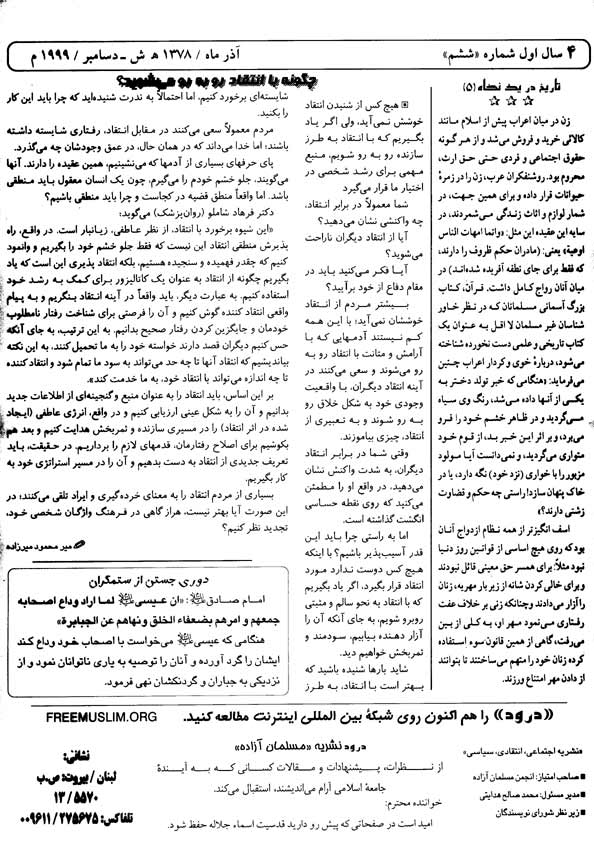 ۴ سال اول شماره «ششم» آذر ماه / ۱۳۷۸ ه ش - دسامبر / ۱۹۹۹ م
تاریخ در یک نگاه (۵)
☆ ☆ ☆
زن در میان اعراب پیش از اسلام مانند
کالائی خرید و فروش می‌شد و از هر گونه
حقوق اجتماعی و فردی حتی حق ارث،
محروم بود. روشنفکران عرب، زن را در زمرهٔ
حیوانات قرار داده و برای همین جهت، در
شمار لوازم و اثاث زندگی می‌شمردند، در
سایه این عقیده این مثل: «وانما امهات الناس
اوعیة» یعنی: (مادران حکم ظروف را دارند،
که فقط برای جای نطفه آفریده شده‌اند) در
میان آنان رواج کامل داشت. قرآن، کتاب
بزرگ آسمانی مسلمانان که در نظر خاور
شناسان غیر مسلمان لا اقل به عنوان یک
کتاب تاریخی و علمی دست نخورده شناخته
می‌شود، دربارهٔ خوی و کردار اعراب چنین
می‌فرماید: «هنگامی که خبر تولد دختر به
یکی از آنها داده می‌شد، رنگ وی سیاه
می‌گردید و در ظاهر خشم خود را فرو
می‌برد، و بر اثر این خبر بد، از قوم خود
متواری می‌گردید، و نمی‌دانست آیا مولود
مزبور را با خواری (نزد خود) نگه دارد، یا در
خاک پنهان سازد! راستی چه حکم و قضاوت
زشتی دارند؟»
اسف انگیزتر از همه نظام ازدواج آنان
بود که روی هیچ اساسی از قوانین روز دنیا
نبود مثلاً: برای همسر حق معینی قائل نبودند
و برای خالی کردن شانه از زیر بار مهریه، زنان
را آزار می‌دادند و چنانکه زنی بر خلاف عفت
رفتاری می‌نمود مهر او، به کلی از بین
می‌رفت، گاهی از همین قانون سوء استفاده
کرده زنان خود را متهم می‌ساختند تا بتوانند
از دادن مهر امتناع ورزند.
چگونه با انتقاد رو به رو می‌شوید؟
هیچ کس از شنیدن انتقاد
خوشش نمی‌آید، ولی اگر یاد
بگیریم که با انتقاد به طرز
سازنده رو به رو شویم، منبع
مهمی برای رشد شخصی در
اختیار ما قرار می‌گیرد
شما معمولاً در برابر انتقاد،
چه واکنشی نشان می‌دهید؟
آیا از انتقاد دیگران ناراحت
می‌شوید؟
آیا فکر می‌کنید باید در
مقام دفاع از خود برآیید؟
بیشتر مردم از انتقاد
خوششان نمی‌آید؛ با این همه
کم نیستند آدمهایی که با
آرامش و متانت با انتقاد رو به
رو می‌شوند و سعی می‌کنند در
آینه انتقاد دیگران، با واقعیت
وجودی خود به شکل خلاق رو
به رو شوند و به تعبیری از
انتقاد، چیزی بیاموزند.
وقتی شما در برابر انتقاد
دیگران، به شدت واکنش نشان
می‌دهید، در واقع او را مطمئن
می‌کنید که روی نقطه حساسی
انگشت گذاشته است.
اما به راستی چرا باید این
قدر آسیب‌پذیر باشیم؟ با اینکه
هیچ کس دوست ندارد مورد
انتقاد قرار بگیرد، اگر یاد بگیریم
که با انتقاد به نحو سالم و مثبتی
روبرو شویم، به جای آنکه آن را
آزار دهنده بیابیم، سودمند و
ثمربخش خواهیم دید.
شاید بارها شنیده باشید که
بهتر است با انتقاد، به طرز
شایسته‌ای برخورد کنیم، اما احتمالاً به ندرت شنیده‌اید که چرا باید این کار
را بکنید.
مردم معمولاً سعی می‌کنند در مقابل انتقاد، رفتاری شایسته داشته
باشند؛ اما خدا می‌داند که در همان حال، در عمق وجودشان چه می‌گذرد.
پای حرفهای بسیاری از آدمها که می‌نشینیم، همین عقیده را دارند. آنها
می‌گویند، جلو خشم خودم را می‌گیرم، چون یک انسان معقول باید منطقی
باشد. اما واقعاً منطق قضیه در کجاست و چرا باید منطقی باشیم؟
دکتر فرهاد شاملو (روان‌پزشک) می‌گوید:
«این شیوه برخورد با انتقاد، از نظر عاطفی، زیانبار است. در واقع، راه
پذیرش منطقی انتقاد این نیست که فقط جلو خشم خود را بگیریم و وانمود
کنیم که چقدر فهمیده و سنجیده هستیم، بلکه انتقاد پذیری این است که یاد
بگیریم چگونه از انتقاد به عنوان یک کاتالیزور برای کمک به رشد خود
استفاده کنیم. به عبارت دیگر، باید واقعاً در آینه انتقاد بنگریم و به پیام
واقعی انتقاد کننده گوش کنیم و آن را فرصتی برای شناخت رفتار نامطلوب
خودمان و جایگزین کردن رفتار صحیح بدانیم. به این ترتیب، به جای آنکه
حس کنیم دیگران قصد دارند خواسته خود را به ما تحمیل کنند، به این نکته
بیاندیشیم که انتقاد آنها تا چه حد می‌تواند به سود ما تمام شود و انتقاد کننده
تا چه اندازه می‌تواند با انتقاد خود، به ما خدمت کند».
بر این اساس، باید انتقاد را به عنوان منبع و گنجینه‌ای از اطلاعات جدید
بدانیم و آن را به شکل عینی ارزیابی کنیم و در واقع، انرژی عاطفی (ایجاد
شده در اثر انتقاد) را در مسیری سازنده و ثمربخش هدایت کنیم و بعد هم
بکوشیم برای اصلاح رفتارمان، قدمهای لازم را برداریم. در حقیقت، باید
تعریف جدیدی از انتقاد به دست بدهیم و آن را در مسیر استراتژی خود به
کار بگیریم.
بسیاری از مردم انتقاد را به معنای خرده‌گیری و ایراد تلقی می‌کنند؛ در
این صورت آیا بهتر نیست، هرازگاهی در فرهنگ واژگان شخصی خود،
تجدید نظر کنیم؟
میر محمود میرزاده
دوری جستن از ستمگران
امام صادق علیه السلام: «ان عیسی علیه السلام لما اراد وداع اصحابه
جمعهم و امرهم بضعفاء الخلق ونهاهم عن الجبابرة»
هنگامی که عیسی علیه السلام می‌خواست با اصحاب خود وداع کند
ایشان را گرد آورده و آنان را توصیه به یاری ناتوانان نمود و از
نزدیکی به جباران و گردنکشان نهی فرمود.
«درود» را هم اکنون روی شبکهٔ بین المللی اینترنت مطالعه کنید. FREEMUSLIM.ORG
«نشریه اجتماعی، انتقادی، سیاسی»
صاحب امتیاز: انجمن مسلمان آزاده
مدیر مسئول: محمد صالح هدایتی
زیر نظر شورای نویسندگان
درود نشریه «مسلمان آزاده»
از نظرات، پیشنهادات و مقالات کسانی که به آیندهٔ
جامعهٔ اسلامی آرام می‌اندیشند، استقبال می‌کند.
خواننده محترم:
امید است در صفحاتی که پیش رو دارید قدسیت اسماء جلاله حفظ شود.
نشانی:
لبنان / بیروت: ص.ب
۱۳/۵۵۷۰
تلفاکس: ۰۰۹۶۱۱/۲۷۵۶۷۵